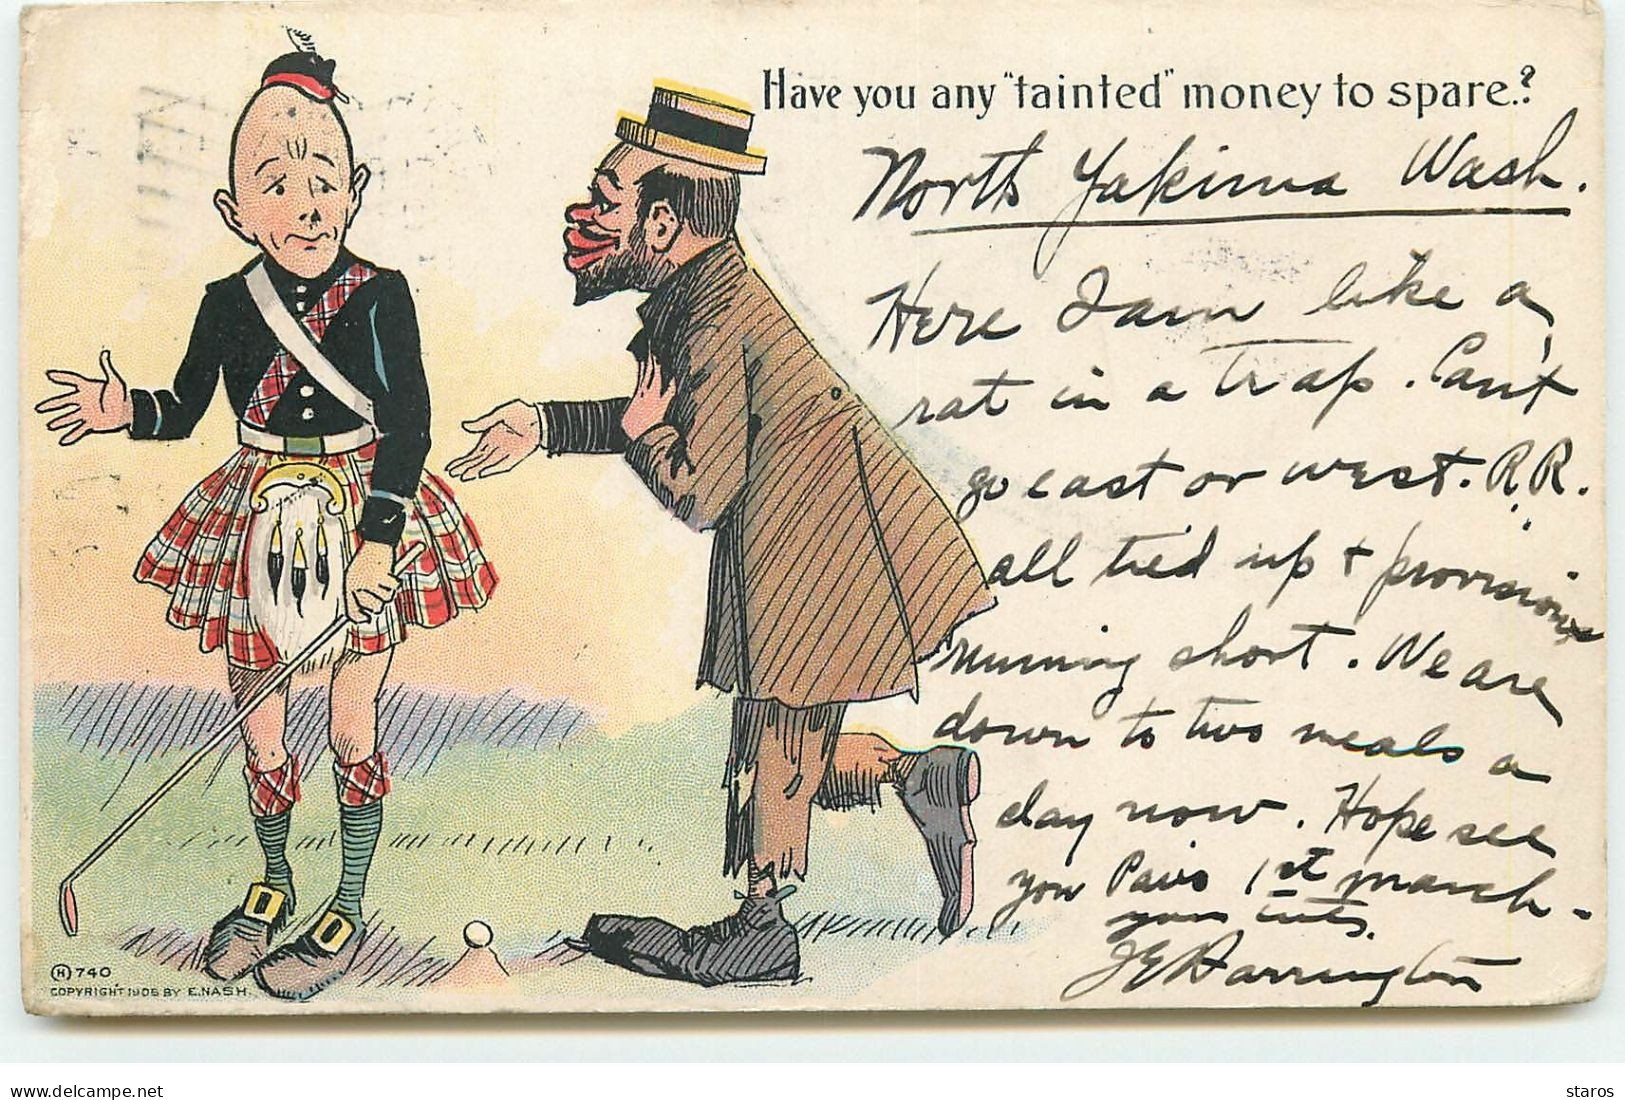 Have you any "tainted" money to spare.?
North Yakima Wash.
Here I am like a
rat in a trap. Can't
go east or west. R.R.
all tied up + provisions
running short. We are
down to two meals a
day now. Hope see
you 1st march -
your
J E Harrington
H 740
COPYRIGHT 1906 BY E. NASH.
delcampe.net
staros